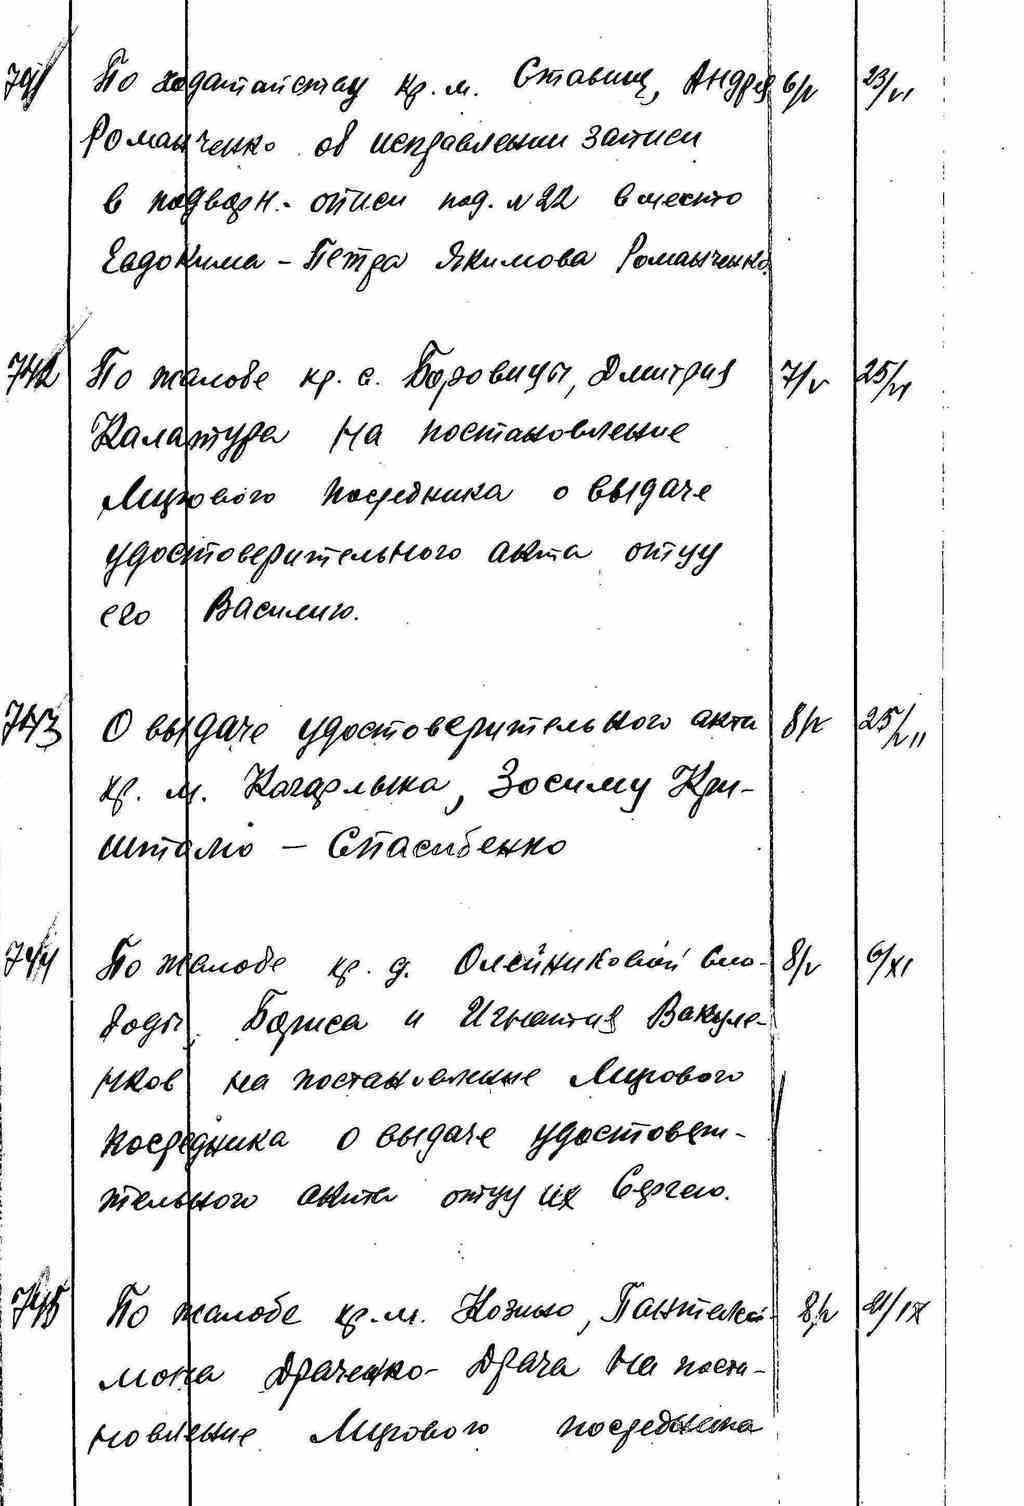 741 По ходатайству кр. м. Ставищ, Андрея 6/V 23/VI
Романченко об исправлении записи
в подворн. описи под. №22 вместо
Евдокима - Петра Якимова Романченко.
742 По жалобе кр. с. Боровицы, Дмитрия 7/V 25/VI
Калатура на постановление
Мирового посредника о выдаче
удостоверительного акта отцу
его Василию.
743 О выдаче удостоверительного акта 8/V 25/VII
кр. м. Кагарлыка, Зосиму Кри-
шталю - Спасибенко
744 По жалобе кр. д. Олейниковой Сло- 8/V 6/XI
боды, Бориса и Игнатия Вакуле-
нков на постановление Мирового
посредника о выдаче удостовери-
тельного акта отцу их Сергею.
745 По жалобе кр. м. Козино, Пантелей- 8/V 21/IX
мона Драченко - Драча на поста-
новление Мирового посредника